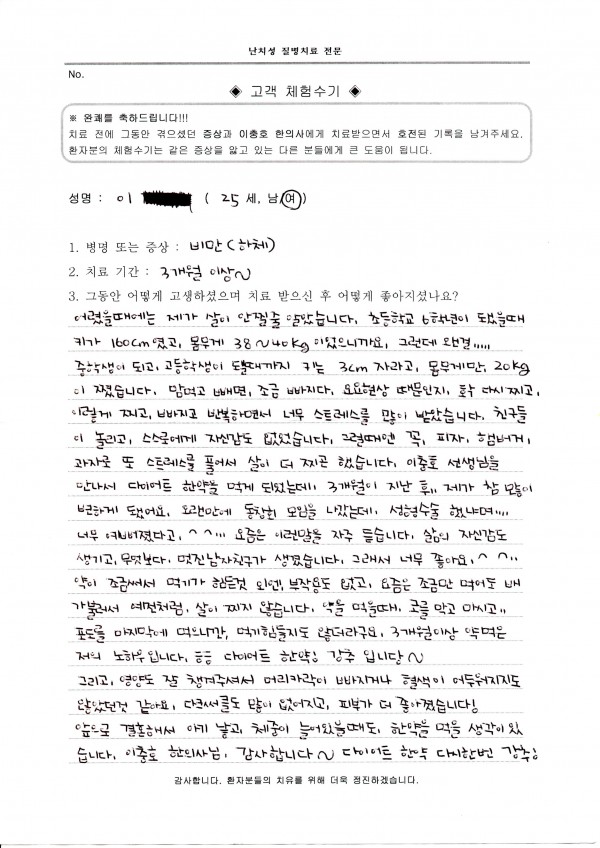 난치성 질병치료 전문
No.
◈ 고객 체험수기 ◈
※ 완쾌를 축하드립니다!!!
치료 전에 그동안 겪으셨던 증상과 이충호 한의사에게 치료받으면서 호전된 기록을 남겨주세요.
환자분의 체험수기는 같은 증상을 앓고 있는 다른 분들에게 큰 도움이 됩니다.
성명 : 이 ( 25 세, 남, 여 )
1. 병명 또는 증상 : 비만 (하체)
2. 치료 기간 : 3개월 이상~
3. 그동안 어떻게 고생하셨으며 치료 받으신 후 어떻게 좋아지셨나요?
어렸을때에는 제가 살이 안찔줄 알았습니다. 초등학교 6학년이 되었을때
키가 160cm 였고, 몸무게 38~40kg 이었으니까요, 그런데 왠걸.....
중학생이 되고, 고등학생이 될때까지 키는 3cm 자라고, 몸무게만, 20kg
이 쪘습니다. 맘먹고 빼면, 조금 빠지다, 요요현상 때문인지, 다시 찌고,
이렇게 찌고, 빠지고 반복하면서 너무 스트레스를 많이 받았습니다. 친구들
이 놀리고, 스스로에게 자신감도 없었습니다. 그럴때엔 꼭, 피자, 햄버거,
과자로 또 스트레스를 풀어서 살이 더 찌곤 했습니다. 이충호 선생님을
만나서 다이어트 한약을 먹게 되었는데, 3개월이 지난 후, 제가 참 많이
변하게 됐어요. 오랜만에 동창회 모임을 나갔는데, 성형수술 했냐며....
너무 예뻐졌다고, ^^... 요즘은 이런말을 자주 듣습니다. 삶의 자신감도
생기고, 무엇보다. 멋진남자친구가 생겼습니다. 그래서 너무 좋아요. ^^..
약이 조금써서 먹기가 힘든것 외엔, 부작용도 없고, 요즘은 조금만 먹어도 배
가불러서 예전처럼, 살이 찌지 않습니다. 약을 먹을때, 코를 막고 마시고,,
포도를 마지막에 먹으니깐, 먹기힘들지도 않더라구요. 3개월이상 약먹은
저의 노하우입니다. 다이어트 한약! 강추 입니당~
그리고, 영양도 잘 챙겨주셔서 머리카락이 빠지거나 혈색이 어두워지지도
않았던것 같아요. 다크써클도 많이 없어지고, 피부가 더 좋아졌습니다!
앞으로 결혼해서 아기 낳고, 체중이 늘어있을때도, 한약을 먹을 생각이 있
습니다. 이충호 한의사님, 감사합니다~ 다이어트 한약 다시한번 강추!
감사합니다. 환자분들의 치유를 위해 더욱 정진하겠습니다.